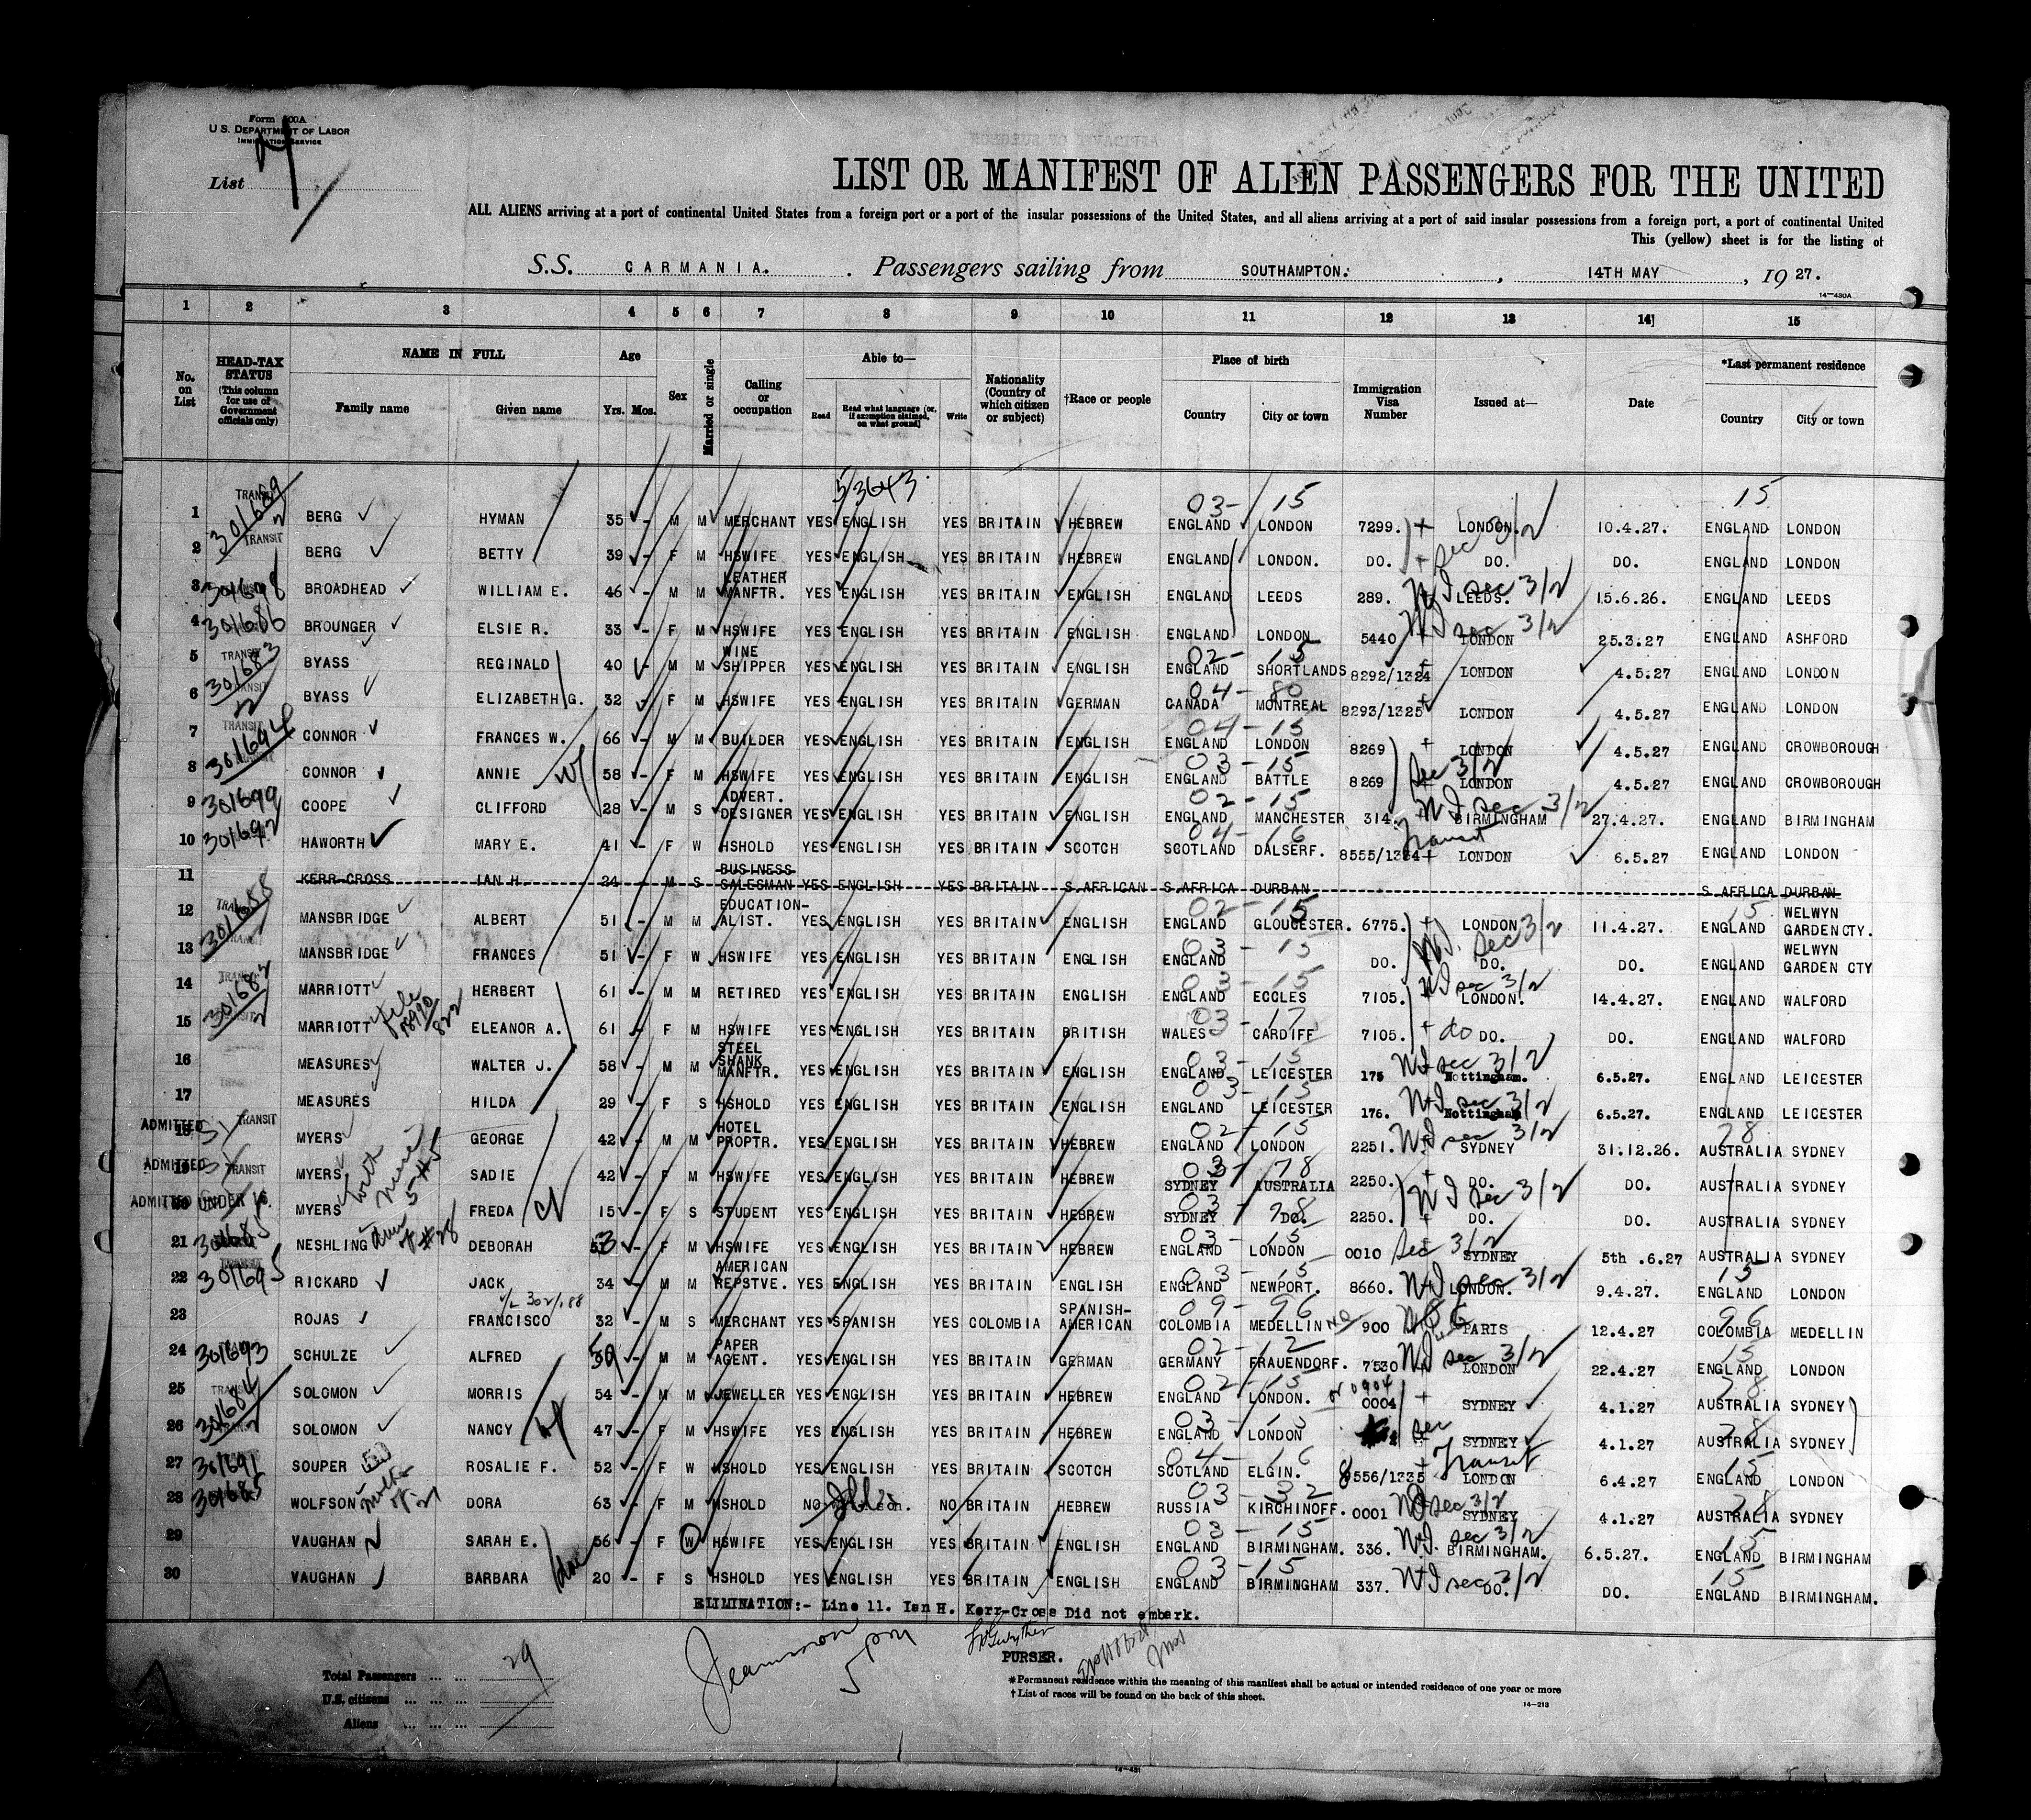 Form 500A
U. S. DEPARTMENT OF LABOR
IMMIGRATION SERVICE
List
LIST OR MANIFEST OF ALIEN PASSENGERS FOR THE UNITED
ALL ALIENS arriving at a port of continental United States from a foreign port or a port of the insular possessions of the United States, and all aliens arriving at a port of said insular possessions from a foreign port, a port of continental United
This (yellow) sheet is for the listing of
S.S. CARMANIA. Passengers sailing from SOUTHAMPTON. , 14TH MAY , 19 27.
14—430A
1 2 3 4 5 6 7 8 9 10 11 12 13 14 15
No. on List HEAD-TAX STATUS (This column for use of Government officials only) NAME IN FULL Family name Given name Age Yrs. Mos. Sex Married or single Calling or occupation Able to— Read Read what language (or, if exemption claimed, on what ground) Write Nationality (Country of which citizen or subject) †Race or people Place of birth Country City or town Immigration Visa Number Issued at— Date *Last permanent residence Country City or town
53643 03- 15 15
1 TRANSIT 301689 BERG HYMAN 35 - M M MERCHANT YES ENGLISH YES BRITAIN HEBREW ENGLAND LONDON 7299. LONDON. 10.4.27. ENGLAND LONDON
2 TRANSIT BERG BETTY 39 - F M HSWIFE YES ENGLISH YES BRITAIN HEBREW ENGLAND LONDON. DO. sec 3/2 DO. DO. ENGLAND LONDON
3 301698 BROADHEAD WILLIAM E. 46 - M M LEATHER MANFTR. YES ENGLISH YES BRITAIN ENGLISH ENGLAND LEEDS 289. sec 3/2 LEEDS. 15.6.26. ENGLAND LEEDS
4 301686 BROUNGER ELSIE R. 33 - F M HSWIFE YES ENGLISH YES BRITAIN ENGLISH ENGLAND LONDON 5440 sec 3/2 LONDON 25.3.27 ENGLAND ASHFORD
5 TRANSIT 301683 BYASS REGINALD 40 - M M WINE SHIPPER YES ENGLISH YES BRITAIN ENGLISH 02- 15 ENGLAND SHORTLANDS 8292/1324 LONDON 4.5.27 ENGLAND LONDON
6 TRANSIT BYASS ELIZABETH G. 32 - F M HSWIFE YES ENGLISH YES BRITAIN GERMAN 04- 80 CANADA MONTREAL 8293/1325 LONDON 4.5.27 ENGLAND LONDON
7 TRANSIT 301694 CONNOR FRANCES W. 66 - M M BUILDER YES ENGLISH YES BRITAIN ENGLISH 04- 15 ENGLAND LONDON 8269 LONDON 4.5.27 ENGLAND CROWBOROUGH
8 CONNOR ANNIE 58 - F M HSWIFE YES ENGLISH YES BRITAIN ENGLISH 03- 15 ENGLAND BATTLE 8269 sec 3/2 LONDON 4.5.27 ENGLAND CROWBOROUGH
9 301699 COOPE CLIFFORD 28 - M S ADVERT. DESIGNER YES ENGLISH YES BRITAIN ENGLISH 02- 15 ENGLAND MANCHESTER 314. sec 3/2 BIRMINGHAM 27.4.27. ENGLAND BIRMINGHAM
10 301692 HAWORTH MARY E. 41 - F W HSHOLD YES ENGLISH YES BRITAIN SCOTCH 04- 16 SCOTLAND DALSERF. 8555/1334 Transit LONDON 6.5.27 ENGLAND LONDON
11 KERR-CROSS IAN H. 24 - M S BUSINESS SALESMAN YES ENGLISH YES BRITAIN S.AFRICAN S.AFRICA DURBAN S.AFRICA DURBAN
12 TRANSIT 301688 MANSBRIDGE ALBERT 51 - M M EDUCATION-ALIST. YES ENGLISH YES BRITAIN ENGLISH 02- 15 ENGLAND GLOUCESTER. 6775. LONDON 11.4.27. 15 ENGLAND WELWYN GARDEN CTY.
13 MANSBRIDGE FRANCES 51 - F W HSWIFE YES ENGLISH YES BRITAIN ENGLISH 03 - 15 ENGLAND DO. sec 3/2 DO. DO. ENGLAND WELWYN GARDEN CTY
14 TRANSIT 301682 MARRIOTT HERBERT 61 - M M RETIRED YES ENGLISH YES BRITAIN ENGLISH 03- 15 ENGLAND ECCLES 7105. sec 3/2 LONDON. 14.4.27. ENGLAND WALFORD
15 MARRIOTT ELEANOR A. 61 - F M HSWIFE YES ENGLISH YES BRITAIN BRITISH 03- 17 WALES CARDIFF 7105. do DO. DO. ENGLAND WALFORD
16 MEASURES WALTER J. 58 - M M STEEL SHANK MANFTR. YES ENGLISH YES BRITAIN ENGLISH 03- 15 ENGLAND LEICESTER 175 sec 3/2 Nottingham. 6.5.27. ENGLAND LEICESTER
17 MEASURES HILDA 29 - F S HSHOLD YES ENGLISH YES BRITAIN ENGLISH 03- 15 ENGLAND LEICESTER 176. sec 3/2 Nottingham 6.5.27. ENGLAND LEICESTER
ADMITTED 18 TRANSIT MYERS GEORGE 42 - M M HOTEL PROPTR. YES ENGLISH YES BRITAIN HEBREW 02- 15 ENGLAND LONDON 2251. sec 3/2 SYDNEY 31.12.26. 78 AUSTRALIA SYDNEY
ADMITTED 19 TRANSIT MYERS SADIE 42 - F M HSWIFE YES ENGLISH YES BRITAIN HEBREW 03- 78 SYDNEY AUSTRALIA 2250. DO. DO. AUSTRALIA SYDNEY
ADMITTED UNDER 16. 20 MYERS FREDA 15 - F S STUDENT YES ENGLISH YES BRITAIN HEBREW 03- 78 SYDNEY DO. 2250. sec 3/2 DO. DO. AUSTRALIA SYDNEY
21 301685 NESHLING DEBORAH 53 - F M HSWIFE YES ENGLISH YES BRITAIN HEBREW 03- 15 ENGLAND LONDON 0010 sec 3/2 SYDNEY 5th .6.27 AUSTRALIA SYDNEY
22 301695 RICKARD JACK 34 - M M AMERICAN REPSTVE. YES ENGLISH YES BRITAIN ENGLISH 03- 15 ENGLAND NEWPORT. 8660. sec 3/2 LONDON. 9.4.27. 15 ENGLAND LONDON
23 ROJAS FRANCISCO 32 - M S MERCHANT YES SPANISH YES COLOMBIA SPANISH-AMERICAN 09- 96 COLOMBIA MEDELLIN 900 PARIS 12.4.27 96 COLOMBIA MEDELLIN
24 301693 SCHULZE ALFRED 50 - M M PAPER AGENT. YES ENGLISH YES BRITAIN GERMAN 02- 12 GERMANY FRAUENDORF. 7530 sec 3/2 LONDON 22.4.27 15 ENGLAND LONDON
25 301684 SOLOMON MORRIS 54 - M M JEWELLER YES ENGLISH YES BRITAIN HEBREW 02- 15 ENGLAND LONDON. or 0904 0004 SYDNEY 4.1.27 78 AUSTRALIA SYDNEY
26 SOLOMON NANCY 47 - F M HSWIFE YES ENGLISH YES BRITAIN HEBREW 03- 15 ENGLAND LONDON sec SYDNEY 4.1.27 78 AUSTRALIA SYDNEY
27 301691 SOUPER ROSALIE F. 52 - F W HSHOLD YES ENGLISH YES BRITAIN SCOTCH 04- 16 SCOTLAND ELGIN. 8556/1335 Transit LONDON 6.4.27 15 ENGLAND LONDON
28 301685 WOLFSON DORA 63 - F M HSHOLD NO NO BRITAIN HEBREW 03- 32 RUSSIA KIRCHINOFF. 0001 sec 3/2 SYDNEY 4.1.27 78 AUSTRALIA SYDNEY
29 VAUGHAN SARAH E. 56 - F W HSWIFE YES ENGLISH YES BRITAIN ENGLISH 03- 15 ENGLAND BIRMINGHAM. 336. sec 3/2 BIRMINGHAM. 6.5.27. 15 ENGLAND BIRMINGHAM
30 VAUGHAN BARBARA 20 - F S HSHOLD YES ENGLISH YES BRITAIN ENGLISH 03- 15 ENGLAND BIRMINGHAM 337. sec 3/2 DO. DO. 15 ENGLAND BIRMINGHAM.
ELIMINATION:- Line 11. Ian H. Kerr-Cross Did not embark.
PURSER.
Total Passengers ... ... 29
U.S. citizens ... ... ...
Aliens ... ... ...
*Permanent residence within the meaning of this manifest shall be actual or intended residence of one year or more
†List of races will be found on the back of this sheet.
14—213
14—431